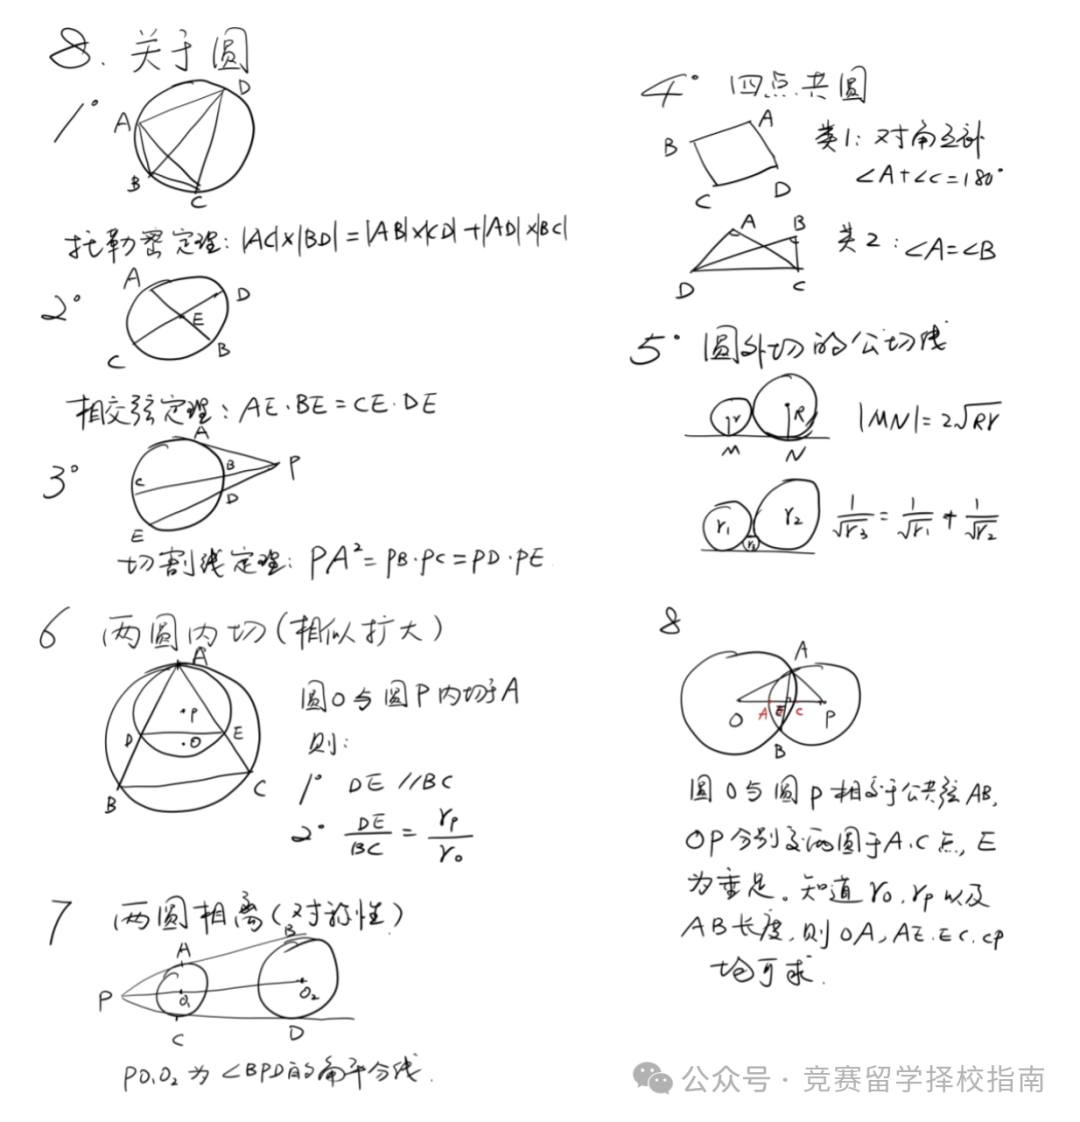 8. 关于圆
1°
D
A
B
C
托勒密定理: |AC|×|BD|=|AB|×|CD|+|AD|×|BC|
2°
A
D
E
C
B
相交弦定理: AE·BE=CE·DE
3°
A
B
P
C
D
E
切割线定理: PA²=PB·PC=PD·PE
4° 四点共圆
A
B
C
D
类1: 对角互补
∠A+∠C=180°
A
B
D
C
类2: ∠A=∠B
5° 圆外切的公切线
r
R
M
N
|MN|=2√Rr
r₁
r₂
r₃
1/√r₃ = 1/√r₁ + 1/√r₂
6 两圆内切(相似扩大)
A
P
D
E
O
B
C
圆O与圆P内切于A
则:
1° DE//BC
2° DE/BC = rP/rO
7 两圆相离(对称性)
B
A
P
O₁
O₂
C
D
PO₁O₂为∠BPD的角平分线.
8
A
O
A
E
C
P
B
圆O与圆P相交于公共弦AB,
OP分别交两圆于A.C点, E
为垂足。知道rO,rP以及
AB长度,则OA,AE.EC.CP
均可求.
公众号·竞赛留学择校指南